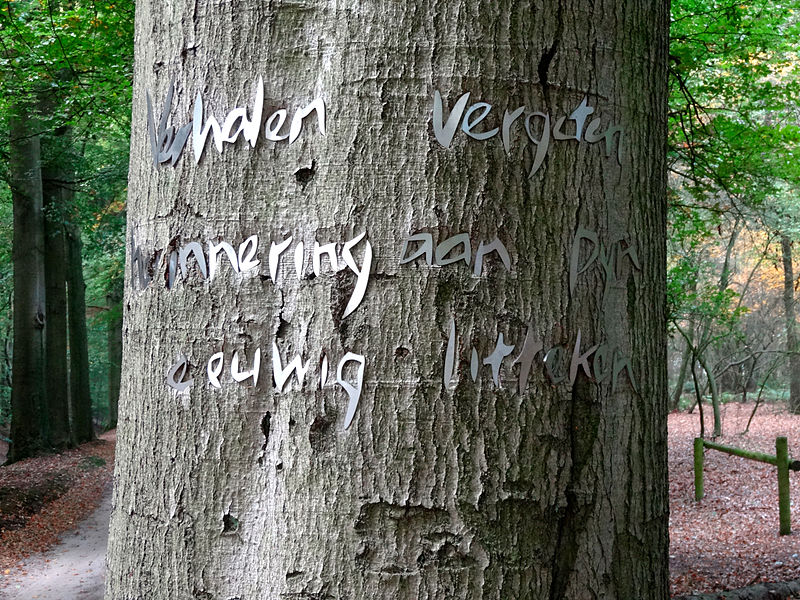 Verhalen Vergeten
herinnering aan pyn
eeuwig litteken